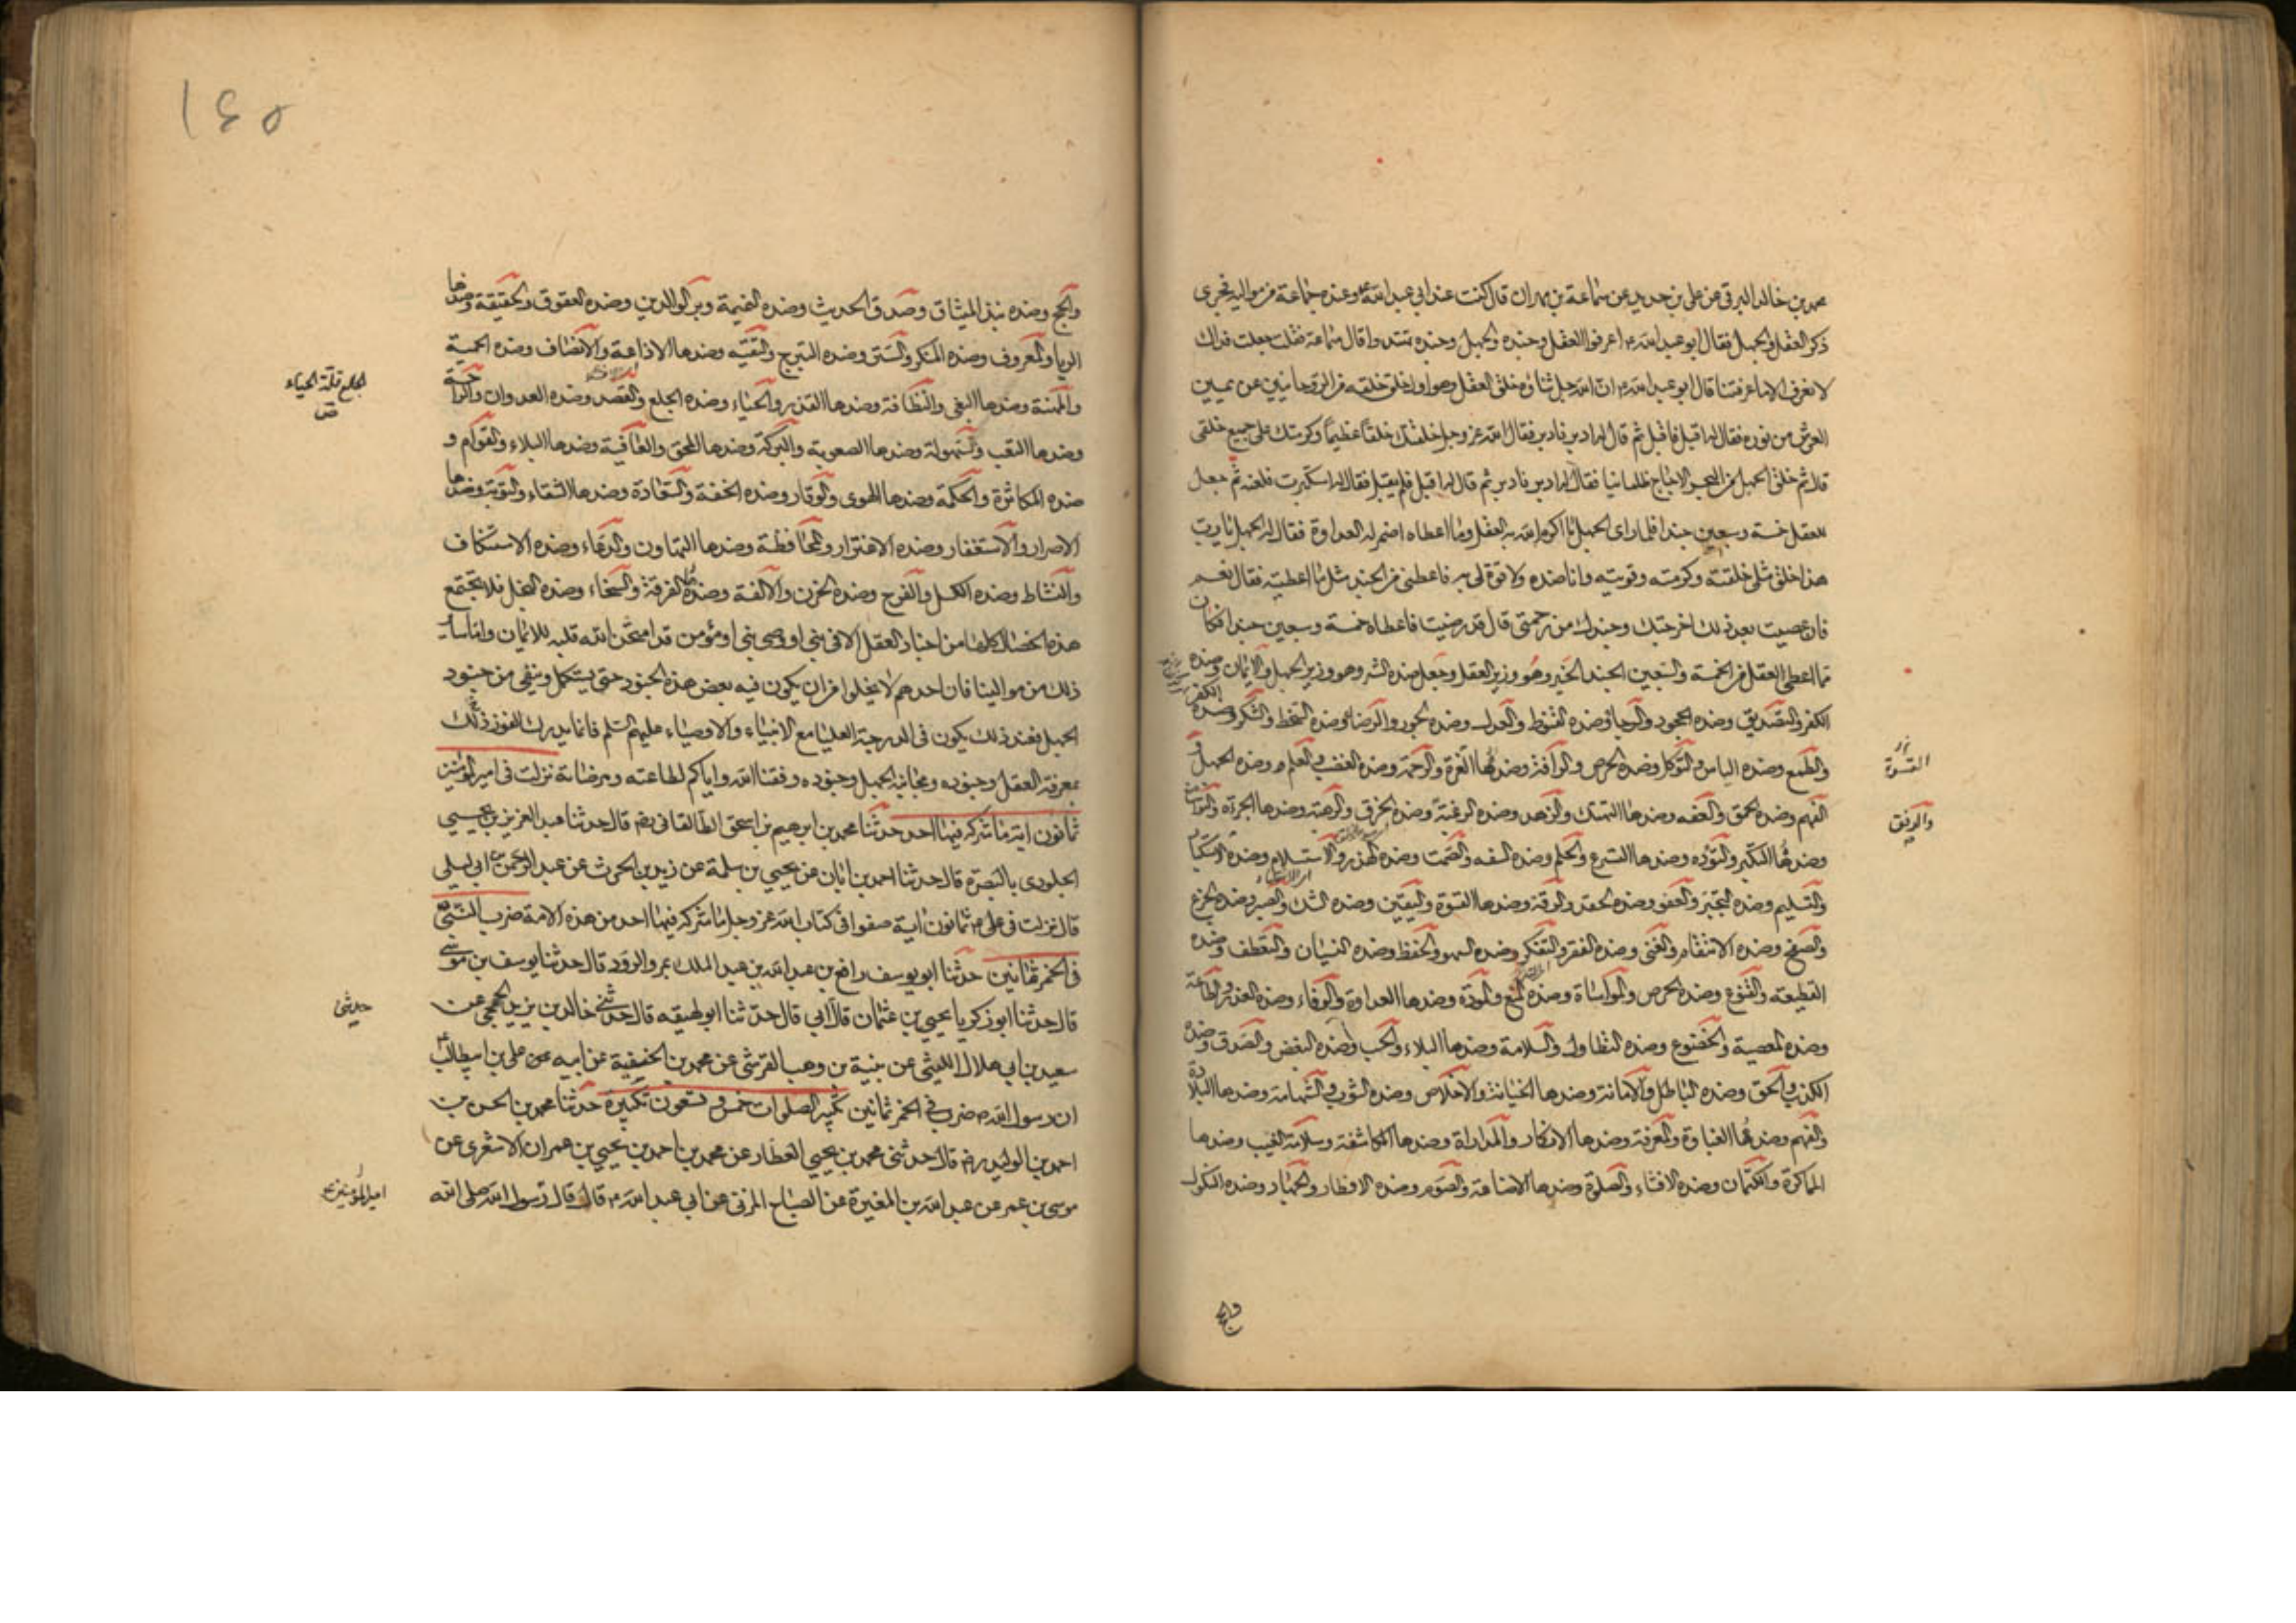 محمد بن خالد البرقى عن على بن حديد عن سماعة بن مهران قال كنت عند ابى عبد الله ع وعنده جماعة من مواليه فجرى
ذكر العقل والجهل فقال ابو عبد الله ع اعرفوا العقل وجنده والجهل وجنده تهتدوا قال سماعة فقلت جعلت فداك
لا نعرف الا ما عرفتنا قال ابو عبد الله ع ان الله جل ثناؤه خلق العقل وهو اول خلق خلقه من الروحانيين عن يمين
العرش من نوره فقال له اقبل فاقبل ثم قال له ادبر فادبر فقال الله عز وجل خلقتك خلقا عظيما وكرمتك على جميع خلقى
قال ثم خلق الجهل من البحر الاجاج ظلمانيا فقال له ادبر فادبر ثم قال له اقبل فلم يقبل فقال له استكبرت فلعنه ثم جعل
للعقل خمسة وسبعين جندا فلما راى الجهل ما اكرم الله به العقل وما اعطاه اضمر له العداوة فقال له الجهل يا رب
هذا خلق مثلى خلقته وكرمته وقويته وانا ضده ولا قوة لى به فاعطنى من الجند مثل ما اعطيته فقال نعم
فان عصيت بعد ذلك اخرجتك وجندك من رحمتى قال قد رضيت فاعطاه خمسة وسبعين جندا فكان
مما اعطى العقل من الخمسة والسبعين الجند الخير وهو وزير العقل وجعل ضده الشر وهو وزير الجهل والايمان وضده
الكفر والتصديق وضده الجحود والرجا وضده القنوط والعدل وضده الجور والرضا وضده السخط والشكر وضده
الكفران
والطمع وضده الياس والتوكل وضده الحرص والرافة وضدها الغرة والرحمة وضده الغضب والعلم وضده الجهل و
القسوة
الفهم وضده الحمق والعفه وضدها التهتك والزهد وضده الرغبة وضده الخرق والرهبة وضدها الجرءة والتواضع
والرفق
وضدها التكبر والتؤده وضدها التسرع والحلم وضده السفه والصمت وضده الهذر والاستسلام وضده الاستكبار
والتسليم وضده التجبر والعفو وضده الحقد والرقة وضدها القسوة واليقين وضده الشك والصبر وضده الجزع
والصفح وضده الانتقام والغنى وضده الفقر والتفكر وضده السهو والحفظ وضده النسيان والتعطف وضده
القطيعة والقنوع وضده الحرص والمواساة وضده المنع والمودة وضدها العداوة والوفاء وضده الغدر والطاعة
وضده المعصية والخضوع وضده التطاول والسلامة وضدها البلاء والحب وضده البغض والصدق وضده
الكذب والحق وضده الباطل والامانة وضدها الخيانة والاخلاص وضده الشوب والشهامة وضدها البلادة
والفهم وضدها الغباوة والمعرفة وضدها الانكار والمداراة وضدها المكاشفة وسلامة الغيب وضدها
المماكرة والكتمان وضده الافشاء والصلوة وضدها الاضاعة والصوم وضده الافطار والجهاد وضده النكول
والحج
١٤٥
والحج وضده نبذ الميثاق وصدق الحديث وضده النميمة وبر الوالدين وضده العقوق والحقيقة وضدها
الريا والمعروف وضده المنكر والستر وضده التبرج والتقيه وضدها الاذاعة والانصاف وضده الحمية
والمهنة وضدها البغى والنظافة وضدها القذر والحياء وضده الجلع والقصد وضده العدوان والراحة
الجلع قلة الحياء
وضدها التعب والسهولة وضدها الصعوبة والبركة وضدها المحق والعافية وضدها البلاء والقوام و
ضده المكاثرة والحكمة وضدها الهوى والوقار وضده الخفة والسعادة وضدها الشقاء والتوبة وضدها
الاصرار والاستغفار وضده الاغترار والمحافظة وضدها التهاون والدعاء وضده الاستنكاف
والنشاط وضده الكسل والفرح وضده الحزن والالفة وضدها الفرقة والسخاء وضده البخل فلا تجتمع
هذه الخصال كلها من اجناد العقل الا فى نبى او وصى نبى او مؤمن قد امتحن الله قلبه للايمان واما سائر
ذلك من موالينا فان احدهم لا يخلوا من ان يكون فيه بعض هذه الجنود حتى يستكمل وينقى من جنود
الجهل فعند ذلك يكون فى الدرجة العليا مع الانبياء والاوصياء عليهم السلم فانما يدرك الفوز ذلك
بمعرفة العقل وجنوده ومجانبة الجهل وجنوده وفقنا الله واياكم لطاعته ومرضاته نزلت فى امير المؤمنين
ثمانون اية ما شركه فيها احد حدثنا محمد بن ابرهيم بن اسحق الطالقانى رض قال حدثنا عبد العزيز بن يحيى
الجلودى بالبصرة قال حدثنا احمد بن ابان عن يحيى بن سلمة عن زيد بن الحرث عن عبد الرحمن بن ابى ليلى
قال نزلت فى على ع ثمانون اية صفوا فى كتاب الله عز وجل ما شركه فيها احد من هذه الامة ضرب النبى ص
فى الخمر ثمانين حدثنا ابو يوسف رافع بن عبد الله بن عبد الملك بمرو الرود قال حدثنا يوسف بن موسى
قال حدثنا ابو زكريا يحيى بن عثمان قال ابى قال حدثنا ابو لهيعه قال حدثنى خالد بن يزيد الجمحى عن
حدثنى
سعيد بن ابى هلال الليثى عن بنية بن وهب القرشى عن محمد بن الحنفية عن ابيه عن على بن ابيطالب ع
ان رسول الله ص ضرب فى الخمر ثمانين تكبير الصلوات خمس وتسعون تكبيرة حدثنا محمد بن الحسن بن
احمد بن الوليد رض قال حدثنى محمد بن يحيى العطار عن محمد بن احمد بن يحيى بن عمران الاشعرى عن
موسى بن عمر عن عبد الله بن المغيرة عن الصباح المزنى عن ابى عبد الله ع قال قال رسول الله صلى الله
امير المؤمنين